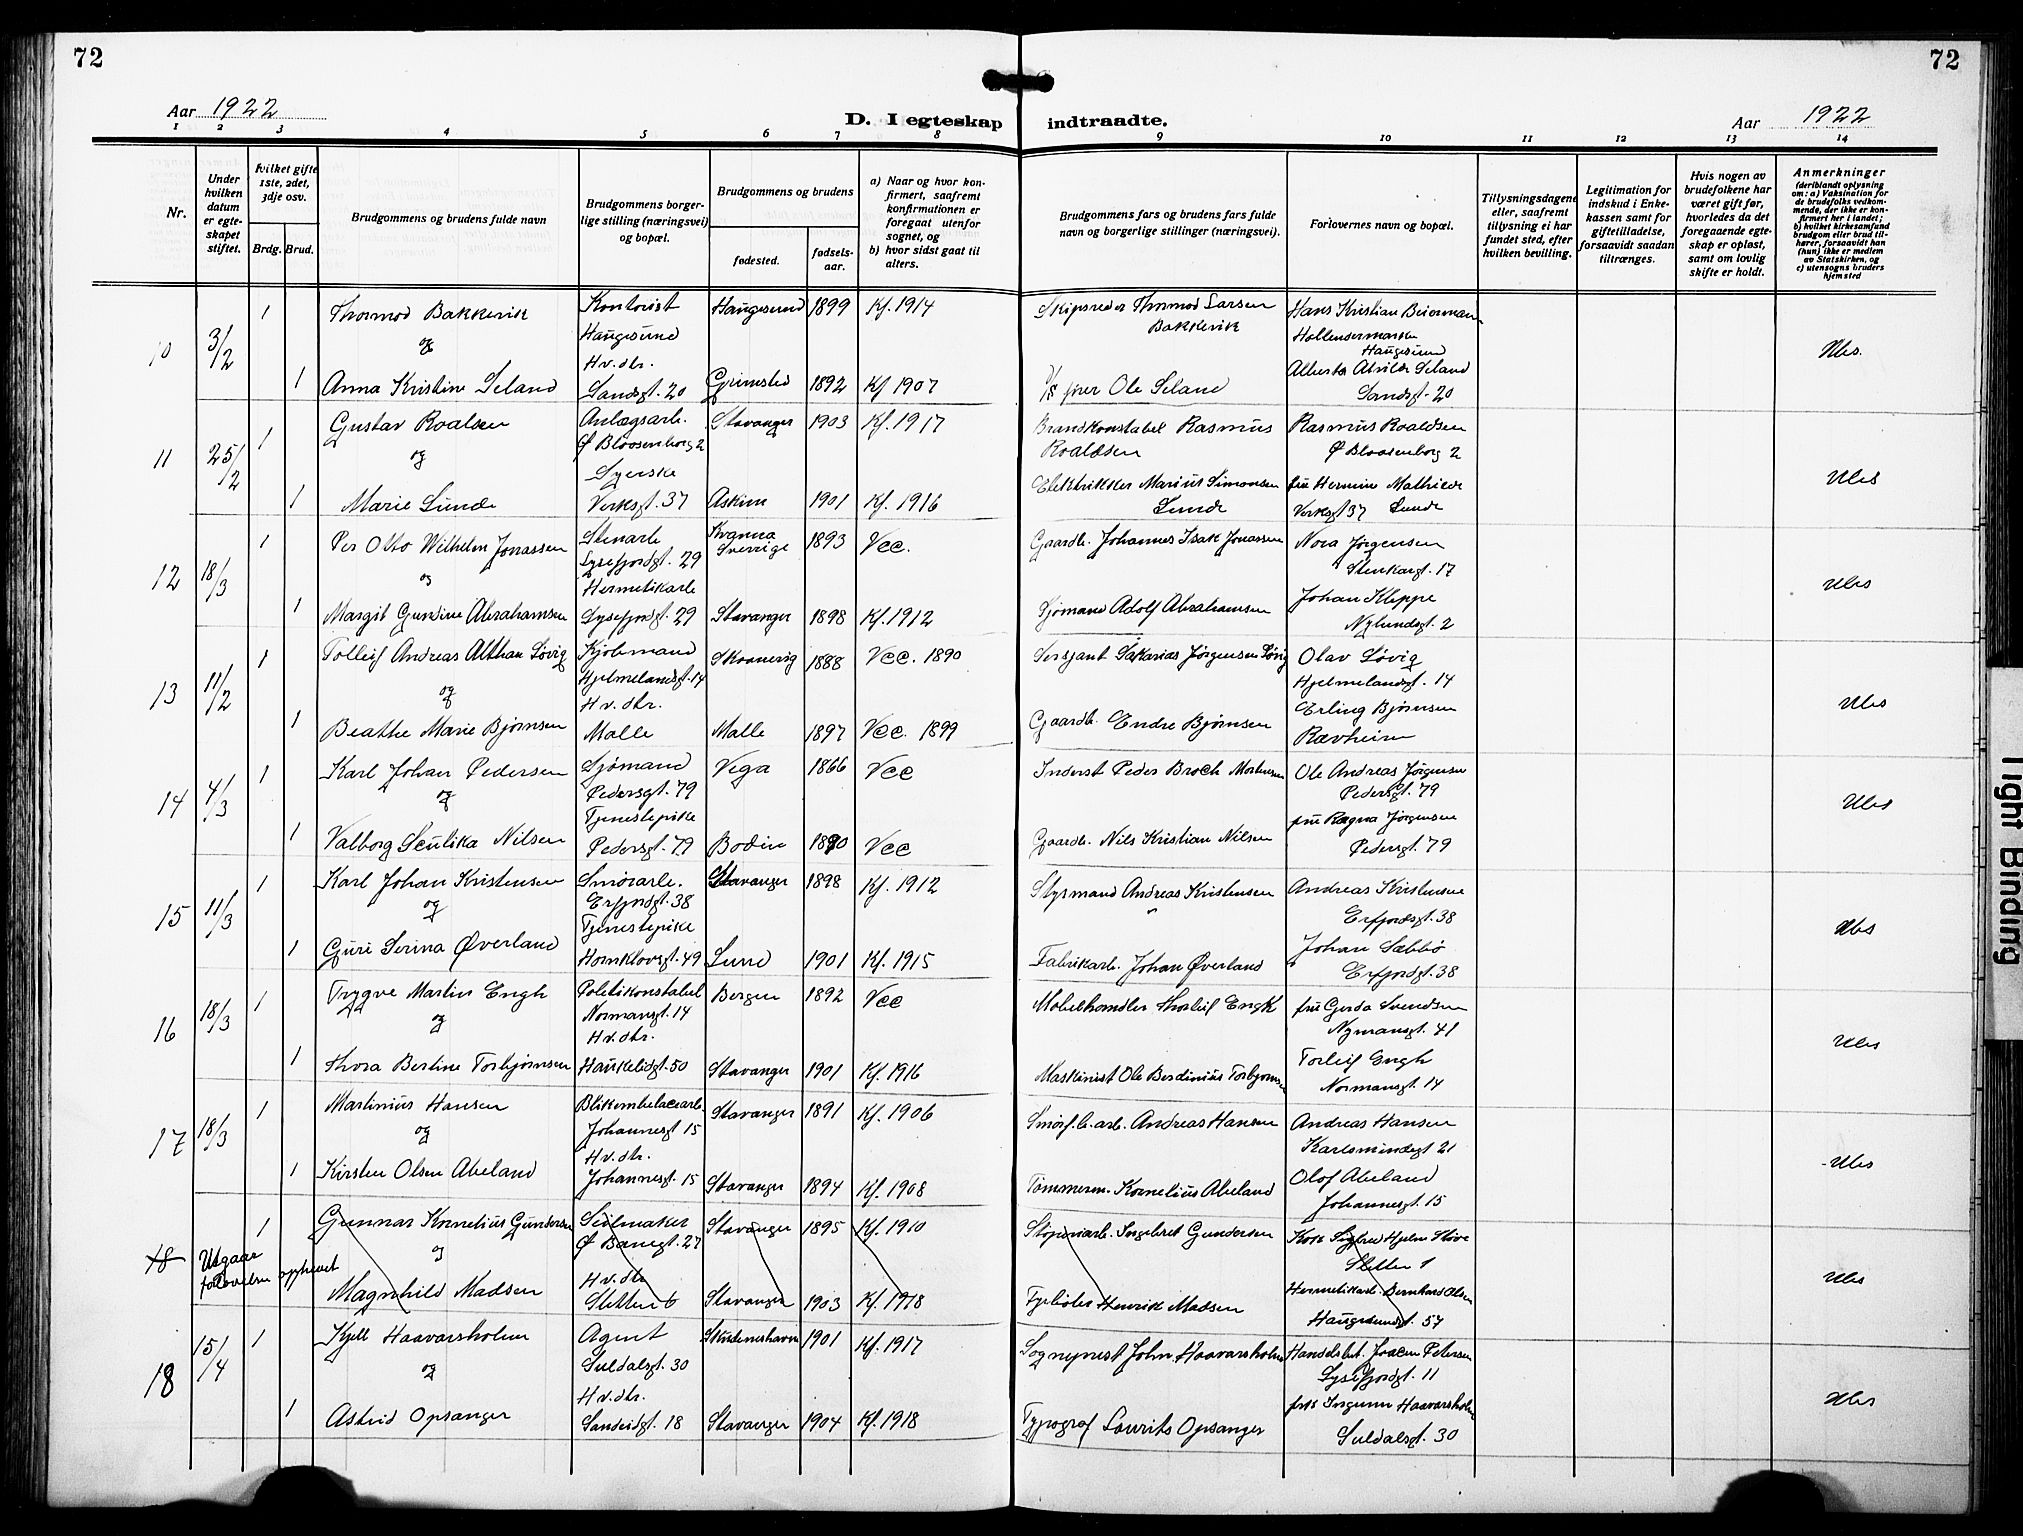 72
72
Aar 1922
D. I egteskap indtraadte.
Aar 1922
1 2 3 4 5 6 7 8 9 10 11 12 13 14
Nr.
Under hvilken datum er egteskapet stiftet.
hvilket gifte 1ste, 2det, 3dje osv.
Brdg. Brud.
Brudgommens og brudens fulde navn
Brudgommens borgerlige stilling (næringsvei) og bopæl.
Brudgommens og brudens
fødested.
fødselsaar.
a) Naar og hvor konfirmert, saafremt konfirmationen er foregaat utenfor sognet, og
b) hvor sidst gaat til alters.
Brudgommens fars og brudens fars fulde navn og borgerlige stillinger (næringsvei).
Forlovernes navn og bopæl.
Tillysningsdagene eller, saafremt tillysning ei har fundet sted, efter hvilken bevilling.
Legitimation for indskud i Enkekassen samt for giftetilladelse, forsaavidt saadan tiltrænges.
Hvis nogen av brudefolkene har været gift før, hvorledes da det foregaaende egteskap er opløst, samt om lovlig skifte er holdt.
Anmerkninger (deriblandt oplysning om: a) Vaksination for de brudefolks vedkommende, der ikke er konfirmert her i landet; b) hvilket kirkesamfund brudgom eller brud tilhører, forsaavidt han (hun) ikke er medlem av Statskirken, og c) utensogns bruders hjemsted
10 3/2 1 Thormod Bakkevik Kontorist Haugesund Haugesund 1899 Kf. 1914 Skipsreder Thormod Larsen Bakkevik Hans Kristian Beierman Haugesund
og
1 Anna Kristine Seland Hv. dtr. Sandsgt. 20 Grimsted 1892 Kf 1907 fører Ole Seland Seland Sandsgt. 20
11 25/2 1 Gustav Roalsen Anlægsarb. Ø Blaasenborg 2 Stavanger 1903 Kf. 1917 Brandkonstabel Rasmus Roaldsen Rasmus Roaldsen Ø Blaasenborg 2
og
1 Marie Lunde Syerske Verksgt. 37 Askim 1901 Kf. 1916 Elektrikker Marius Simonsen Lunde fru Hermine Mathilde Lunde Verksgt 37
12 18/3 1 Per Otto Wilhelm Jonassen Stenarb Lysefjordgt. 29 Sverrige 1893 Vcc. Gaardb. Johannes Isak Jonassen Nora Jørgensen Stenkargt. 17
og
1 Margit Gundine Abrahamsen Hermetikarb Lysefjordgt. 29 Stavanger 1898 Kf. 1912 Sjømand Adolf Abrahamsen Johan Kleppe Nylundsgt. 2
13 11/2 1 Tolleif Andreas Althan Løvig Kjøbmand Hjelmelandsgt. 14 Skaanevig 1888 Vcc. 1890 Sersjant Sakarias Jørgensen Løvig Olav Løvig Hjelmelandsgt. 14
og
1 Beathe Marie Bjørnsen Hv. dtr. Malle Malle 1897 Vcc. 1899 Gaardb. Endre Bjørnsen Erling Bjørnsen Rævheim
14 4/3 1 Karl Johan Pedersen Sjømand Pedersgt. 79 Vega 1866 Vcc Inderst Peder Broch Mortensen Ole Andreas Jørgensen Pedersgt. 79
og
1 Valborg Seulika Nilsen Tjenestepike Pedersgt. 79 Bodin 1890 Vcc Gaardb. Nils Kristian Nilsen fru Ragna Jørgensen Pedersgt. 79
15 11/3 1 Karl Johan Kristensen Smørarb. Erfjordgt. 38 Stavanger 1898 Kf. 1912 Styrmand Andreas Kristensen Andreas Kristensen Erfjordsgt. 38
og
1 Guri Serina Øverland Tjenestepike Hornklovsgt. 49 Lund 1901 Kf. 1915 Fabrikarb. Johan Øverland Johan Sæbbø Erfjordgt. 38
16 18/3 1 Trygve Martin Engh Politikonstabel Normansgt. 14 Bergen 1892 Vcc Møbelhandler Thorleif Engh fru Gerda Svendsen Nymansgt. 41
og
1 Thora Bertine Torbjørnsen Hv. dtr. Haukelidgt. 50 Stavanger 1901 Kf. 1916 Maskinist Ole Berdinius Torbjørnsen Torleif Engh Normansgt. 14
17 18/3 1 Martinius Hansen Blikemballagearb. Johannesgt 15 Stavanger 1891 Kf. 1906 Andreas Hansen Andreas Hansen Karlsmindegt 21
og
1 Kirsten Olsen Abeland Hv. dtr. Johannesgt. 15 Stavanger 1894 Kf. 1908 Tømmerm. Kornelius Abeland Olof Abeland Johannesgt. 15
18 Utgaar forlovelsen ophævet 1 Gunnar Kornelius Gundersen Seilmaker Ø Banegt. 27 Stavanger 1895 Kf. 1910 Støperiarb. Ingebret Gundersen Stølen 1
og
Magnhild Madsen Hv. dtr Sletten 6 Stavanger 1903 Kf. 1918 Henrik Madsen Hermetikarb. Bernhard Olsen Haugesundsgt. 57
18 15/4 1 Kjell Haavarsholm Agent Suldalsgt. 30 Skudeneshavn 1901 Kf. 1917 Sogneprest John Haavarsholm Handelsbet. Joacim Petersen Lysefjordgt. 11
og
1 Astrid Opsanger Hv. dtr. Sandeidgt. 18 Stavanger 1904 Kf. 1918 Typograf Laurits Opsanger frk Ingunn Haavarsholm Suldalsgt. 30
Tight Binding